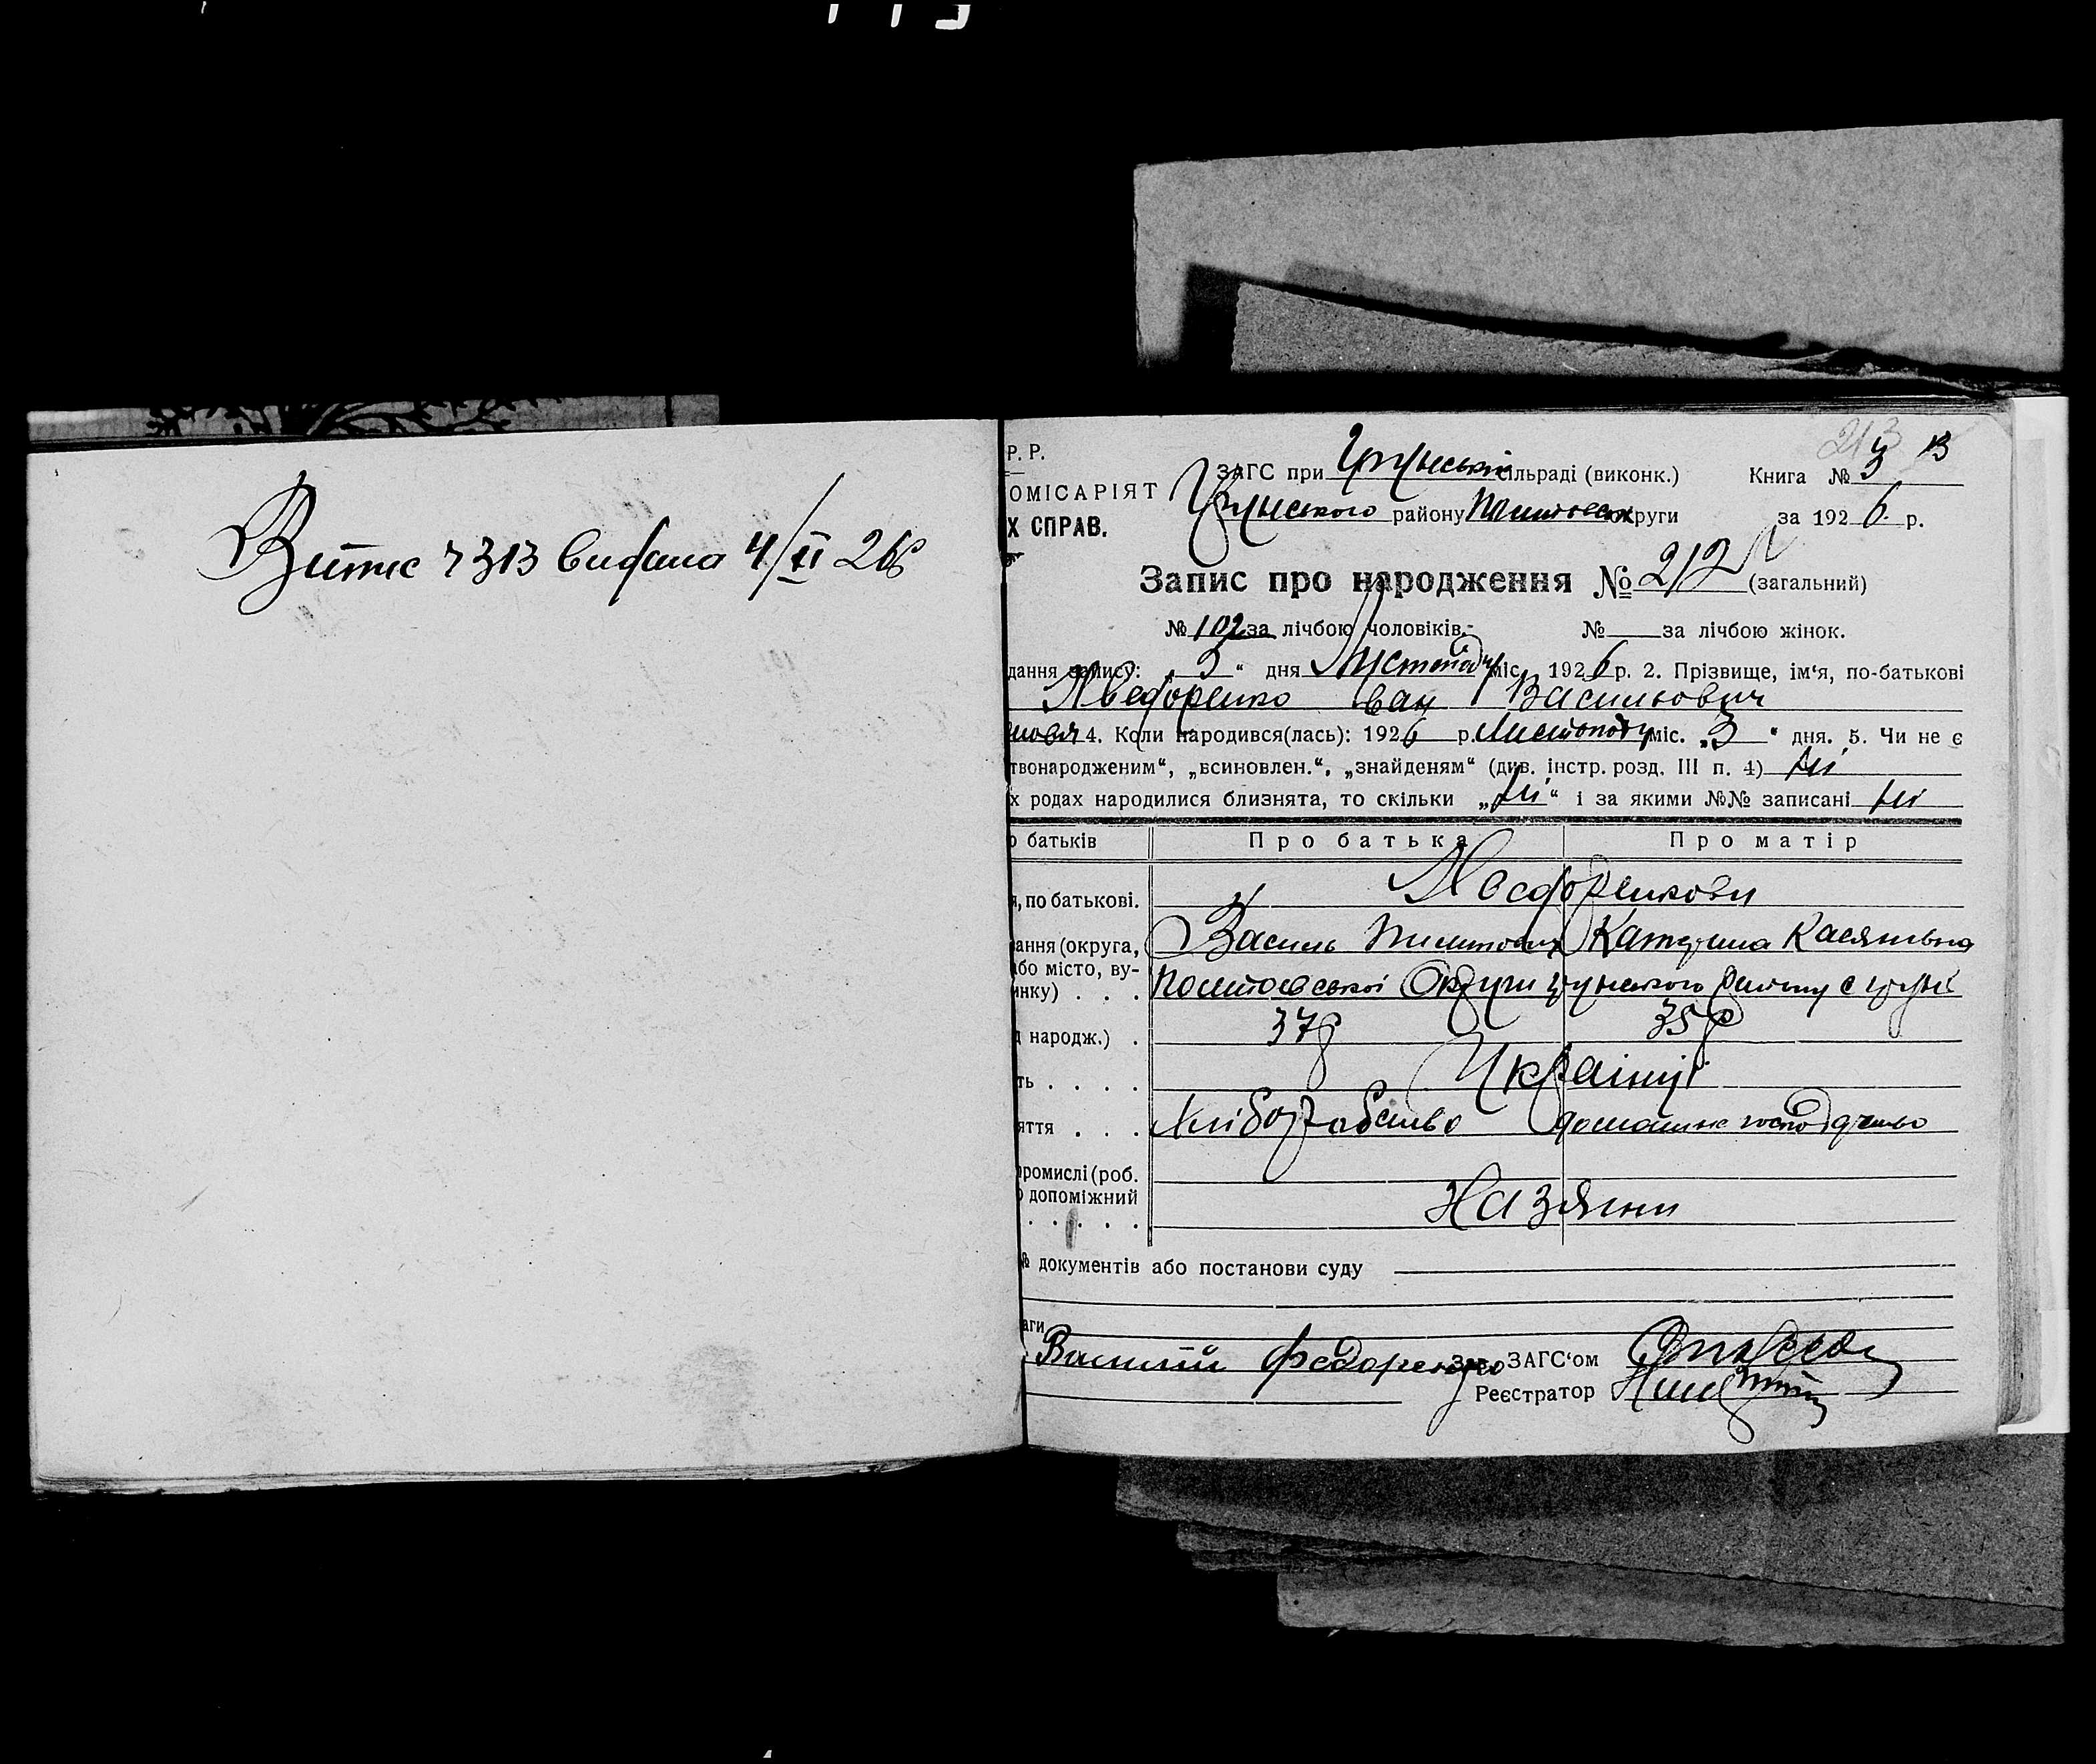 Витис 7313 видана 4/II 26р
Р. Р.
ОМІСАРІЯТ
Х СПРАВ.
213 В
ЗАГС при Грунській сільраді (виконк.) Книга № 3
Грунського району Полтавськ округи за 1926 р.
Запис про народження № 212 (загальний)
№ 102 за лічбою чоловіків. № за лічбою жінок.
дання запису: „3“ дня Листопаду міс. 1926 р. 2. Прізвище, ім‘я, по-батькові
Хведоренко Іван Васильович
4. Коли народився(лась): 1926 р. Листопаду міс. „3“ дня. 5. Чи не є
твонародженим“, „всиновлен.“, „знайденям“ (див. інстр. розд. III п. 4) Ні
х родах народилися близнята, то скільки „Ні“ і за якими №№ записані Ні
о батьків Про батька Про матір
Хведоренкови
, по батькові.
ання (округа, Василь Пилипович Катерина Касянівна
або місто, ву-
инку) . . . Полтавської Округи Грунського району с Груні
д народж.) . 37р 35р
ть . . . . Українці
яття . . . Хліборобство домашнє господарство
промислі (роб.
о допоміжний
. . . . . Хазяїни
№ документів або постанови суду
аги
Василій Федоренко Зав. ЗАГС‘ом
Реєстратор